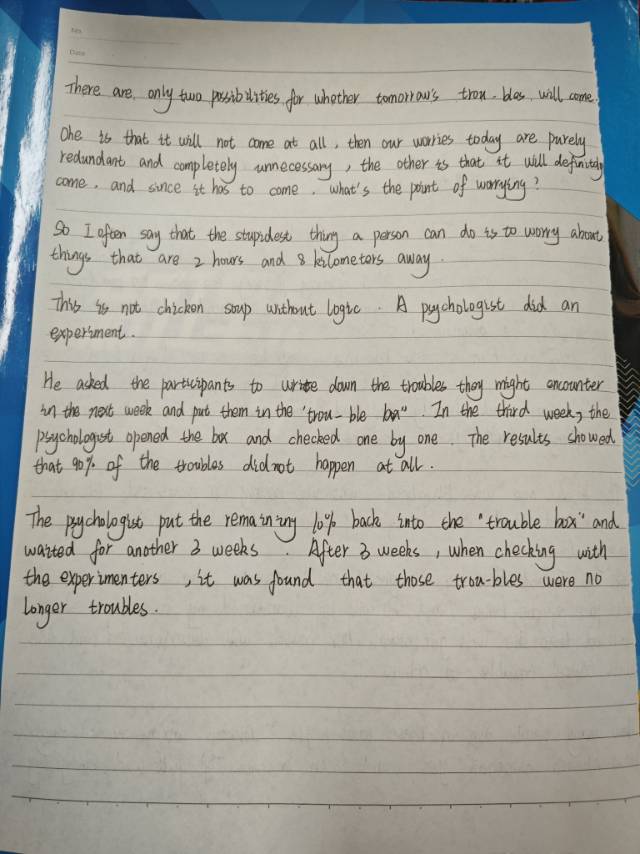 No.
Date
There are only two possibilities for whether tomorrow's trou-bles will come.
One is that it will not come at all, then our worries today are purely
redundant and completely unnecessary, the other is that it will definitely
come. and since it has to come. what's the point of worrying?
So I often say that the stupidest thing a person can do is to worry about
things that are 2 hours and 8 kilometers away.
This is not chicken soup without logic. A psychologist did an
experiment.
He asked the participants to write down the troubles they might encounter
in the next week and put them in the "trou-ble box". In the third week, the
psychologist opened the box and checked one by one. The results showed
that 90% of the troubles did not happen at all.
The psychologist put the remaining 10% back into the "trouble box" and
waited for another 3 weeks. After 3 weeks, when checking with
the experimenters, it was found that those trou-bles were no
longer troubles.